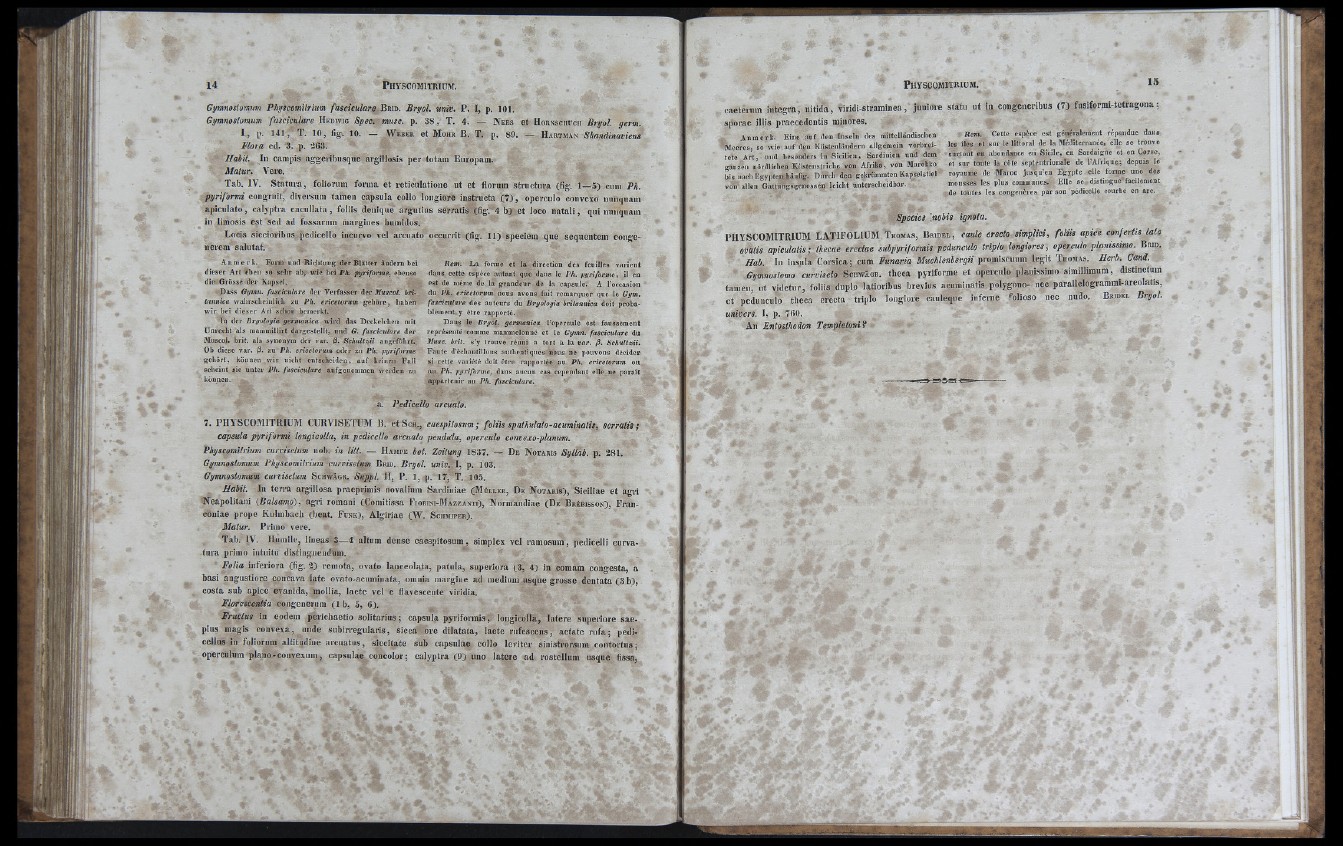 14 PHYSCOMITRIUM.
Gymnostomum Physcomitrium fasciculare BRID. Bryol. univ. P. I, p. 101.
Gymnostomum fasciculare HEDWIG Spec. musc. p. 38, T. 4. — NEES et HORNSCHUCH Bryol. germ.
I, p. 141, T. 10, fig. 10. — WEBER et MOHR B. T. p. 89. — HARTMAN Skandinaviens
Flora ed. 3. p. 263.
Habit. In campis aggeribusque argillosis per totam Europam.
Matur. Vere.
Tab. IV. Statura, foliorum forma et reticulatione ut et florum structura (fig. 1—5) cum Ph.
pyriformi congruit, diversum tamen capsula collo longiore instructa (7), operculo convexo nunquam
apiculato, calyptra cucullata, foliis denique argutius serratis (fig. 4 b) et loco natali, qui nunquam
in limosis est sed ad fossarum margines humidos.
Locis siccioribus pedicello incurvo vel arcuato occurrit (fig. 11) speciem que sequentem conge-
nerem salutat.
Anmerk. Form und Richtung der Blätter ändern bei
dieser Art eben so sehr ab, wie bei Ph. pyriforme, ebenso
die Grösse der Kapsel.
Dass Gymn. fasciculare der Verfasser der Muscol. bri-
tannica wahrscheinlich zu Ph. ericetorum gehöre, haben
wir bei dieser Art schon bemerkt.
In der Bryologia germanica wird das Deckelchen mit
Unrecht als mammillirt dargestellt, und G. fasciculare der
Muscol. brit. als synonym der var. β. Schultzii angeführt.
Ob diese var. β. zu Ph. ericetorum oder zu Ph. pyriforme
gehört, können wir nicht entscheiden, auf keinen Fall
scheint sie unter Ph. fasciculare aufgenommen werden zu
können.
Rem. La forme et la direction des feuilles varient
dans cette espèce autant que dans le Ph. pyriforme, il en
est de même de la grandeur de la capsule. A l'occasion
du Ph. ericetorum nous avons fait remarquer que le Gym.
fasciculare des auteurs du Bryologia britannica doit proba-
blement y être rapporté.
Dans le Bryol. germanica l'opercule est faussement
représenté comme mammelonné et le Gymn. fasciculare du
Musc. brit. s'y trouve réuni à tort à la var. β. Schultzii.
Faute d'échantillons authentiques nous ne pouvons décider
si cette variété doit être rapportée au Ph. ericetorum ou
au Ph. pyriforme, dans aucun cas cependant elle ne paraît
appartenir au Ph. fasciculare.
a. Pedicello arcuato.
7. PHYSCOMITRIUM CURVISETUM B. et SCH., caespitosum; foliis spathulato-acuminatis, serratis;
capsula pyriformi longicolla, in pedicello arcuato pendula, operculo convexo-planum.
Physcomitrium curvisetum nob. in litt. — HAMPE bot. Zeitung 1837. — DE NOTARIS Syllab. p. 281.
Gymnostomum Physcomitrium curvisetum BRID. Bryol. univ. I, p. 103.
Gymnostomum curvisetum SCHWÄGR. Suppl. II, P. 1, p. 17, T. 105.
Habit. In terra argillosa praeprimis novalium Sardiniae (MÜLLER, DE NOTARIS), Siciliae et agri
Neapolitani (Balsamo), agri romani (Comitissa FIORINI-MAZZANTI), Normandiae (DE BRÉBISSON), Fran-
coniae prope Kulmbach (beat. FUNK), Algiriae (W. SCHIMPER).
Matur. Primo vere.
Tab. IV. Humile, lineas 3—4 altum dense caespitosum, simplex vel ramosum, pedicelli curva-
tura primo intuitu distinguendum.
Folia inferiora (fig. 2) remota, ovato lanceolata, patula, superiora (3, 4) in comam congesta, a
basi angustiore concava late ovato-acuminata, omnia margine ad medium usque grosse dentata (3 b),
costa sub apice evanida, mollia, laete vel e flavescente viridia.
Florescentia congenerum (1 b, 5, 6).
Fructus in eodem perichaetio solitarius; capsula pyriformis, longicolla, latere superiore sae-
pius magis convexa, unde subirregularis, sicca ore dilatata, laete rufescens, aetate rufa; pedi-
cellus in foliorum altitudine arcuatus, siccitate sub capsulae collo leviter sinistrorsum contortus;
operculum plano-convexum, capsulae concolor; calyptra (9) uno latere ad rostellum usque fissa,
PHYSCOMITRIUM. 15
caeterum integra, nitida, viridi-straminea, juniore statu ut in congeneribus (7) fusiformi-tetragona;
sporae illis praecedentis minores.
Anmerk. Eine auf den Inseln des mittelländischen
Meeres, so wie auf den Küstenländern allgemein verbrei-
tete Art, und besonders in Sicilien, Sardinien und dem
ganzen nördlichen Küstenstriche von Afrika, von Marokko
bis nach Egypten häufig. Durch den gekrümmten Kapselstiel
von allen Gattungsgenossen leicht unterscheidbar.
Rem. Cette espèce est généralement répandue dans
les îles et sur le littoral de la Méditerranée, elle se trouve
surtout en abondance en Sicile, en Sardaigne et en Corse,
et sur toute la côte septentrionale de l'Afrique, depuis le
royaume de Maroc jusqu'en Egypte elle forme une des
mousses les plus communes. Elle se distingue facilement
de toutes les congenères par son pédicelle courbé en arc.
Species nobis ignota.
PHYSCOMITRIUM LATIFOLIUM THOMAS, BRIDEL, caule erecto simplici, foliis apice confertis lato
ovatis apiculatis; thecae erectae subpyriformis pedunculo triplo longiores, operculo planissimo. BRID.
Hab. In insula Corsica; cum Funaria Muehlenbergii promiscuum legit THOMAS. Herb. Cand.
Gymnostomo curviseto SCHWÄGR. theca pyriforme et operculo planissimo simillimum, distinctum
tamen, ut videtur, foliis duplo latioribus brevius acuminatis polygono- nec parallelogrammi-areolatis,
et pedunculo theca erecta triplo longiore cauleque inferne folioso nec nudo. BRIDEL Bryol.
univers. I, p. 760.
An Entosthodon Templetoni?